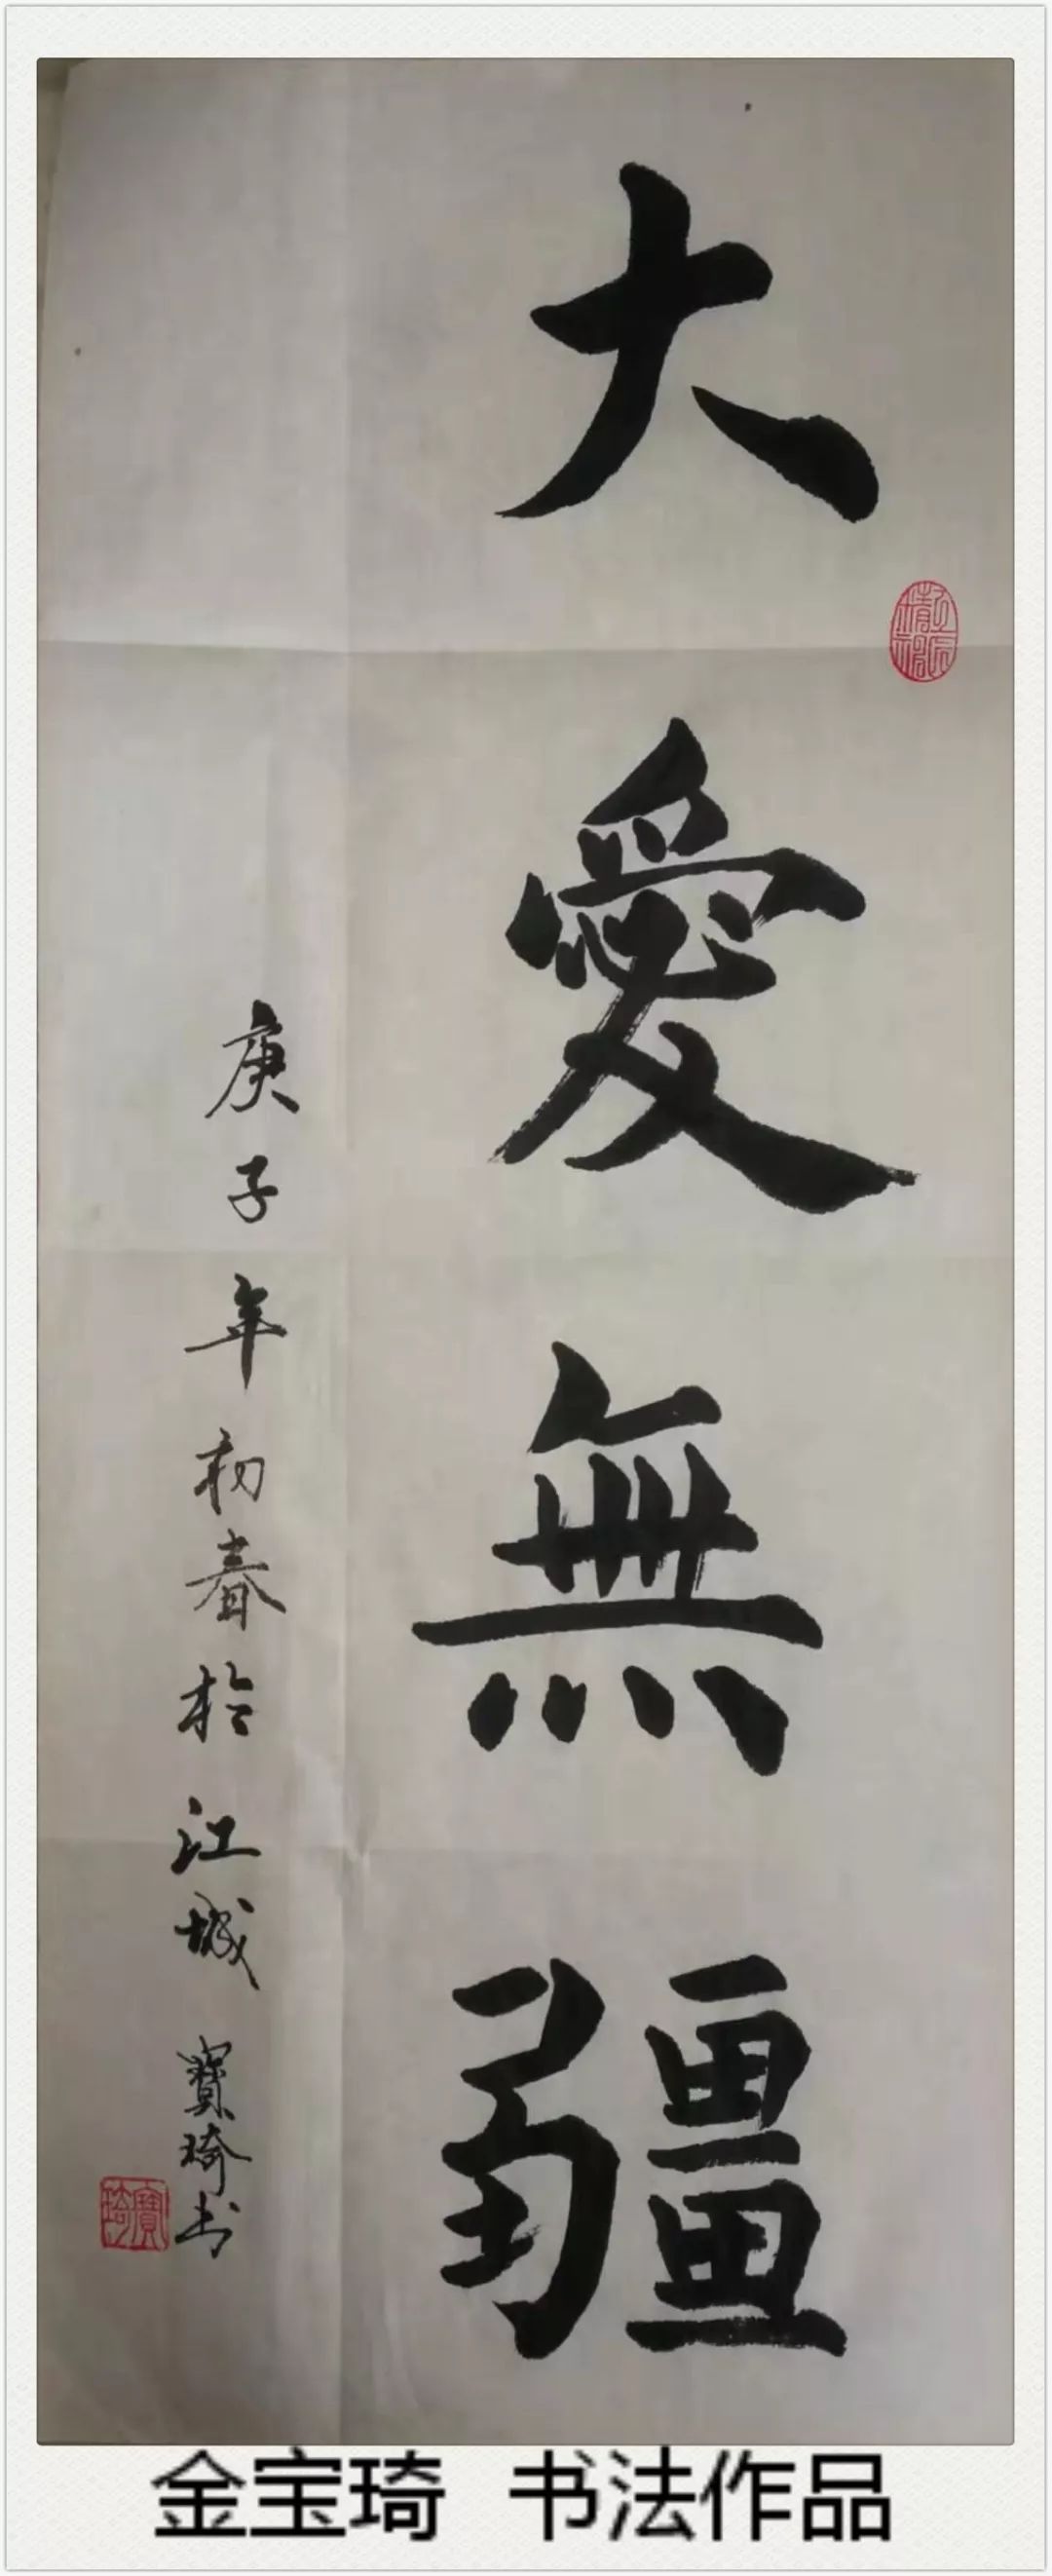 大愛無疆
庚子年初春於江城 寶琦书
寶琦
金宝琦 书法作品